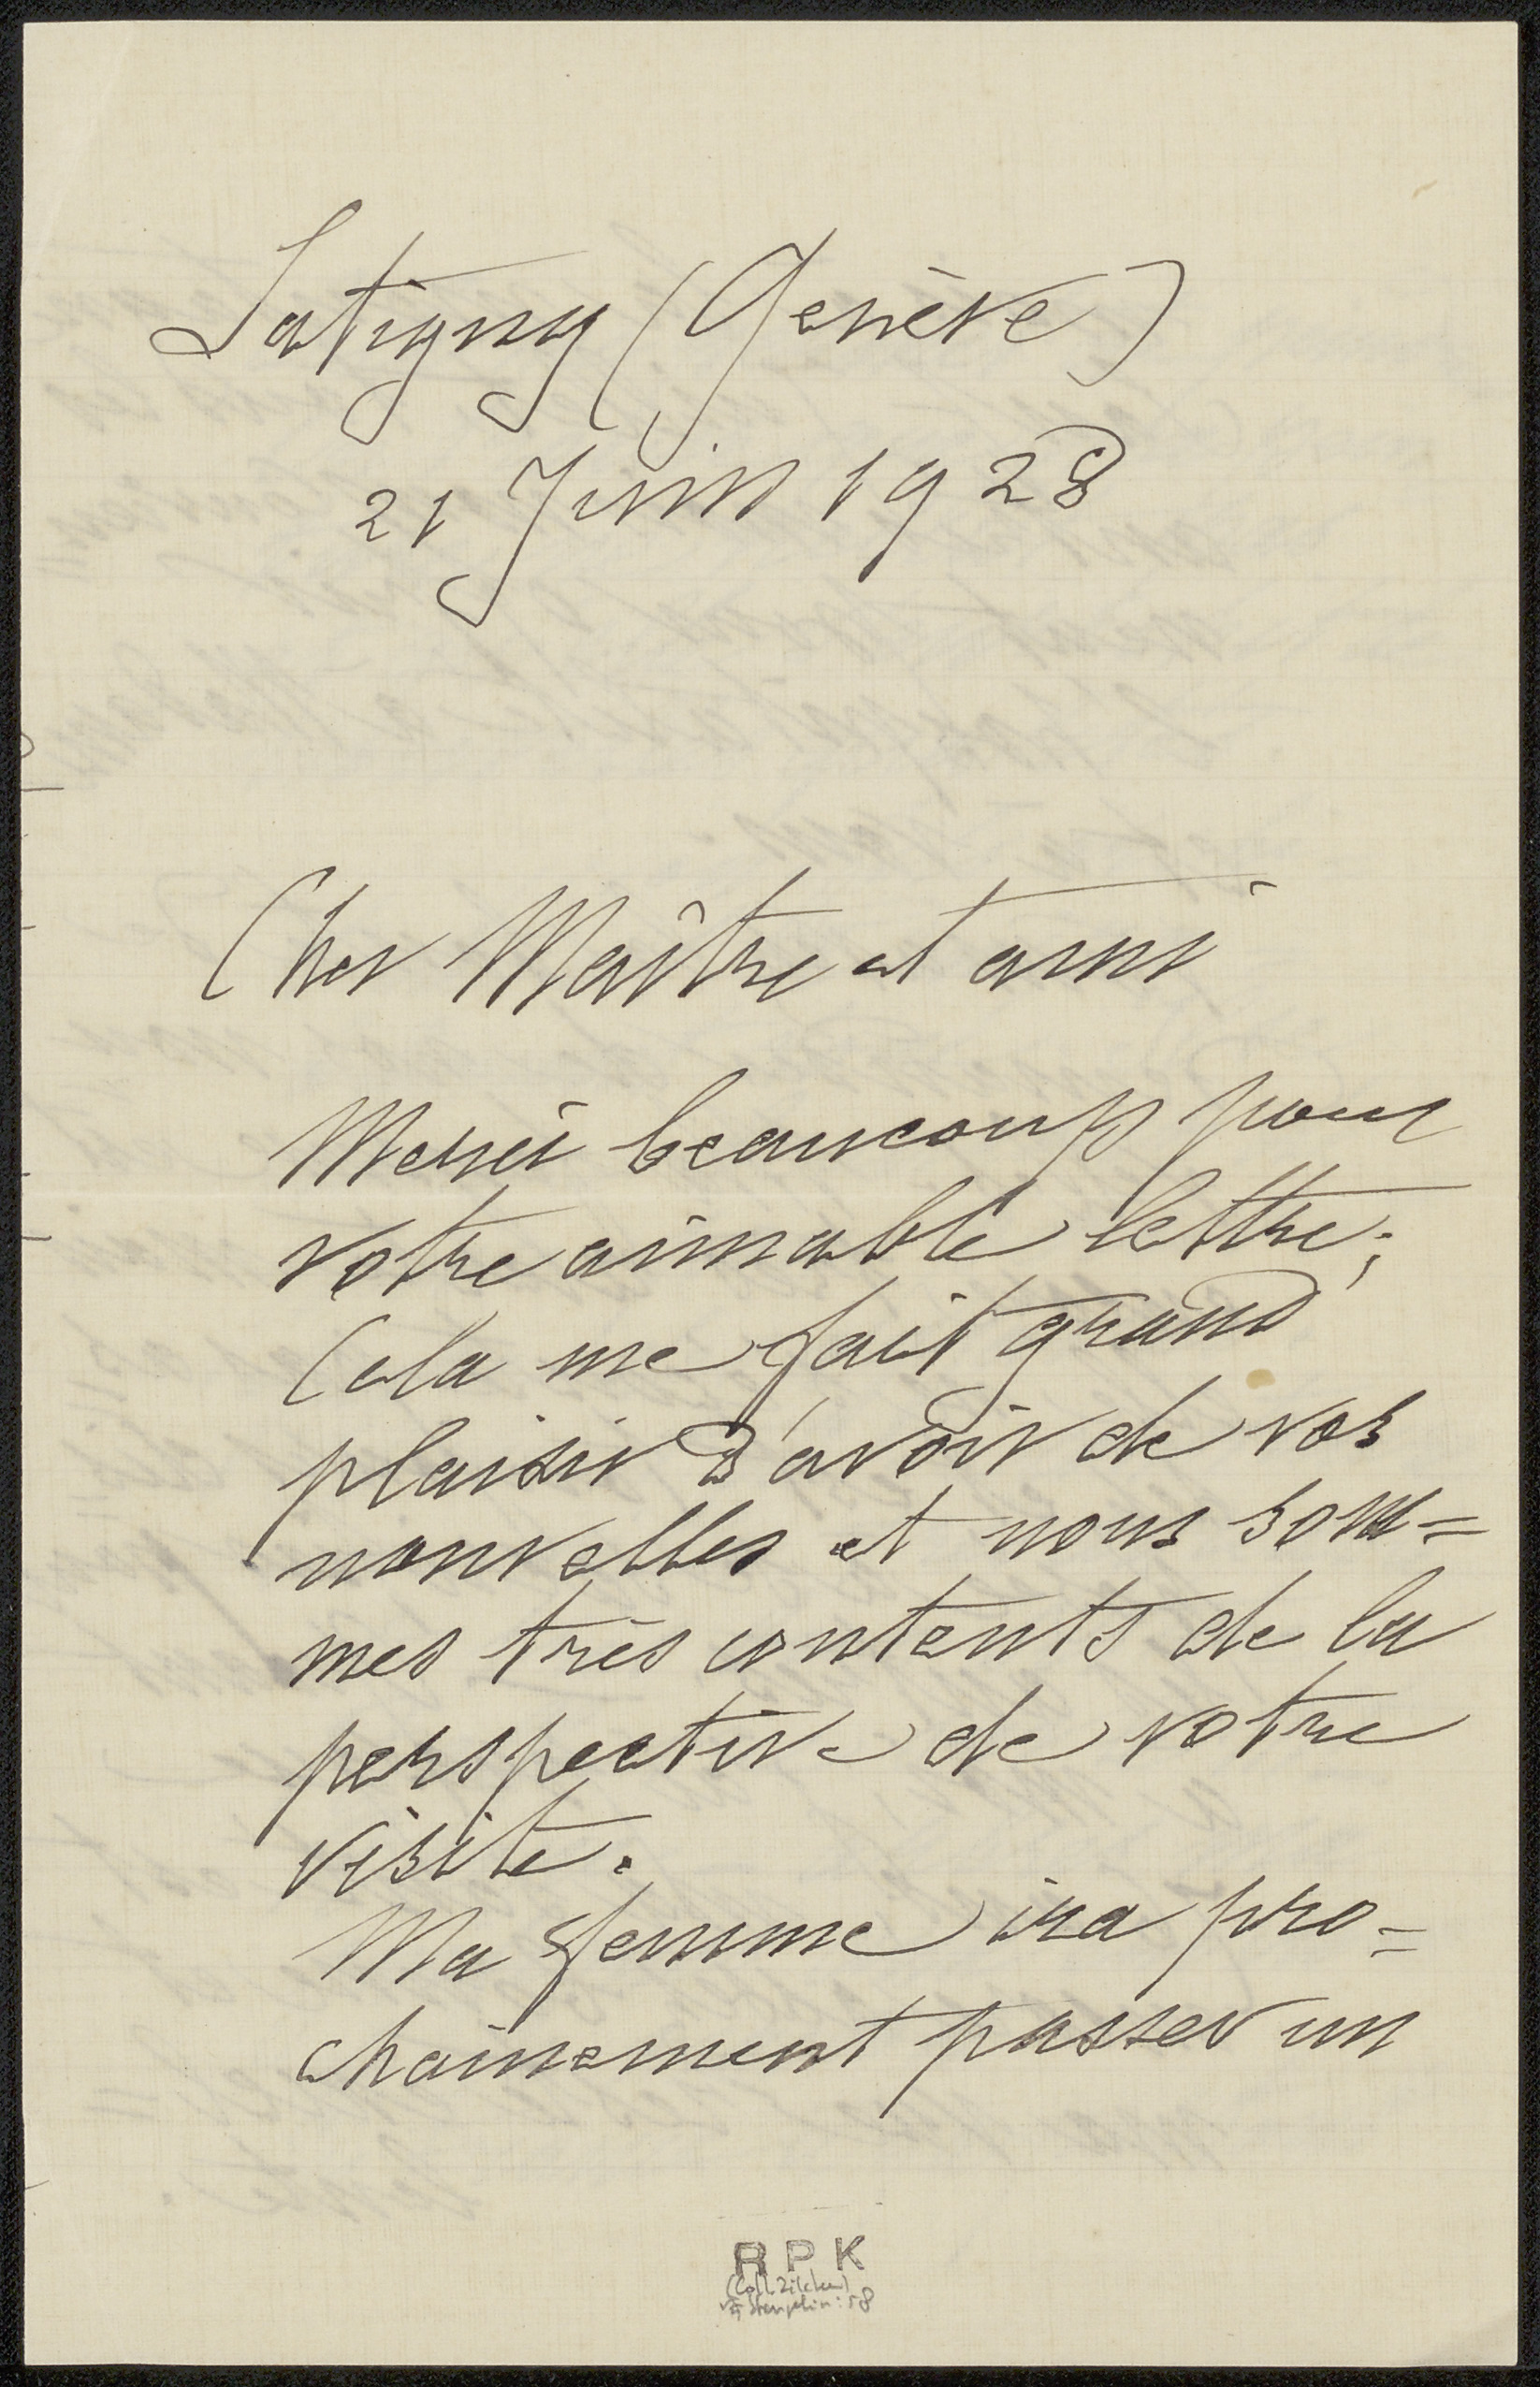 Satigny (Genève)
21 Juin 1928
Cher Maître et ami
Merci beaucoup pour
votre aimable lettre;
Cela me fait grand
plaisir d'avoir de vos
nouvelles et nous som=
mes très contents de la
perspective de votre
visite.
Ma femme ira pro=
chainement passer un
R P K
(Coll. Zilcken)